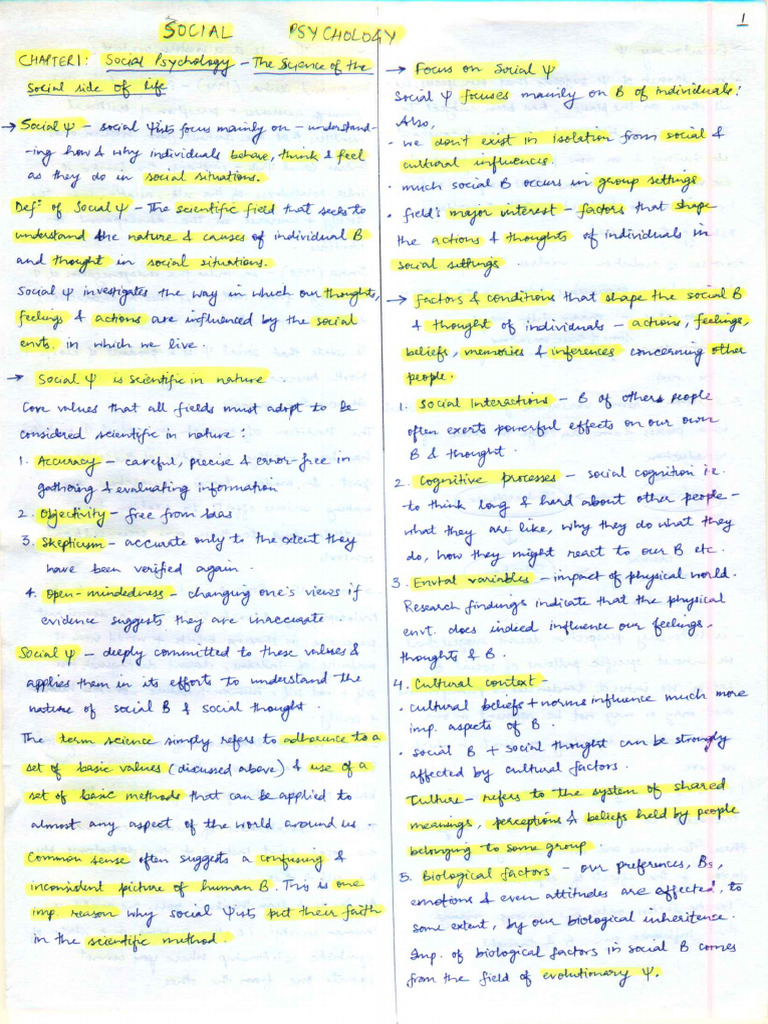 SOCIAL PSYCHOLOGY
1
CHAPTER 1: Social Psychology - The Science of the
social side of life
→ Social Ψ - social Ψists focus mainly on - understand-
-ing how & why individuals behave, think & feel
as they do in social situations.
Defⁿ of Social Ψ - The scientific field that seeks to
understand the nature & causes of individual B
and thought in social situations.
Social Ψ investigates the way in which our thoughts,
feelings & actions are influenced by the social
envts. in which we live.
→ Social Ψ is scientific in nature
Core values that all fields must adopt to be
considered scientific in nature:
1. Accuracy - careful, precise & error-free in
gathering & evaluating information
2. Objectivity - free from bias
3. Skepticism - accurate only to the extent they
have been verified again.
4. Open-mindedness - changing one's views if
evidence suggests they are inaccurate.
Social Ψ - deeply committed to these values &
applies them in its effort to understand the
nature of social B & social thought.
The term science simply refers to adherence to a
set of basic values (discussed above) & use of a
set of basic methods that can be applied to
almost any aspect of the world around us -
Common sense often suggests a confusing &
inconsistent picture of human B. This is one
imp. reason why social Ψists put their faith
in the scientific method.
→ Focus on Social Ψ
Social Ψ focuses mainly on B of individuals.
Also,
- we don't exist in isolation from social &
cultural influences.
• much social B occurs in group settings
• field's major interest - factors that shape
the actions & thoughts of individuals in
social settings.
→ factors & conditions that shape the social B
& thought of individuals - actions, feelings,
beliefs, memories & inferences concerning other
people.
1. Social Interactions - B of others people
often exerts powerful effects on our own
B & thought.
2. Cognitive processes - social cognition i.e.
to think long & hard about other people -
what they are like, why they do what they
do, how they might react to our B etc.
3. Envtal variables - impact of physical world.
Research findings indicate that the physical
envt. does indeed influence our feelings,
thoughts & B.
4. Cultural context -
• cultural beliefs + norms influence much more
imp. aspects of B.
• social B + social thought can be strongly
affected by cultural factors.
Culture - refers to the system of shared
meanings, perceptions & beliefs held by people
belonging to some group
5. Biological factors - our preferences, Bs,
emotions & even attitudes are affected, to
some extent, by our biological inheritence.
Imp. of biological factors in social B comes
from the field of evolutionary Ψ.